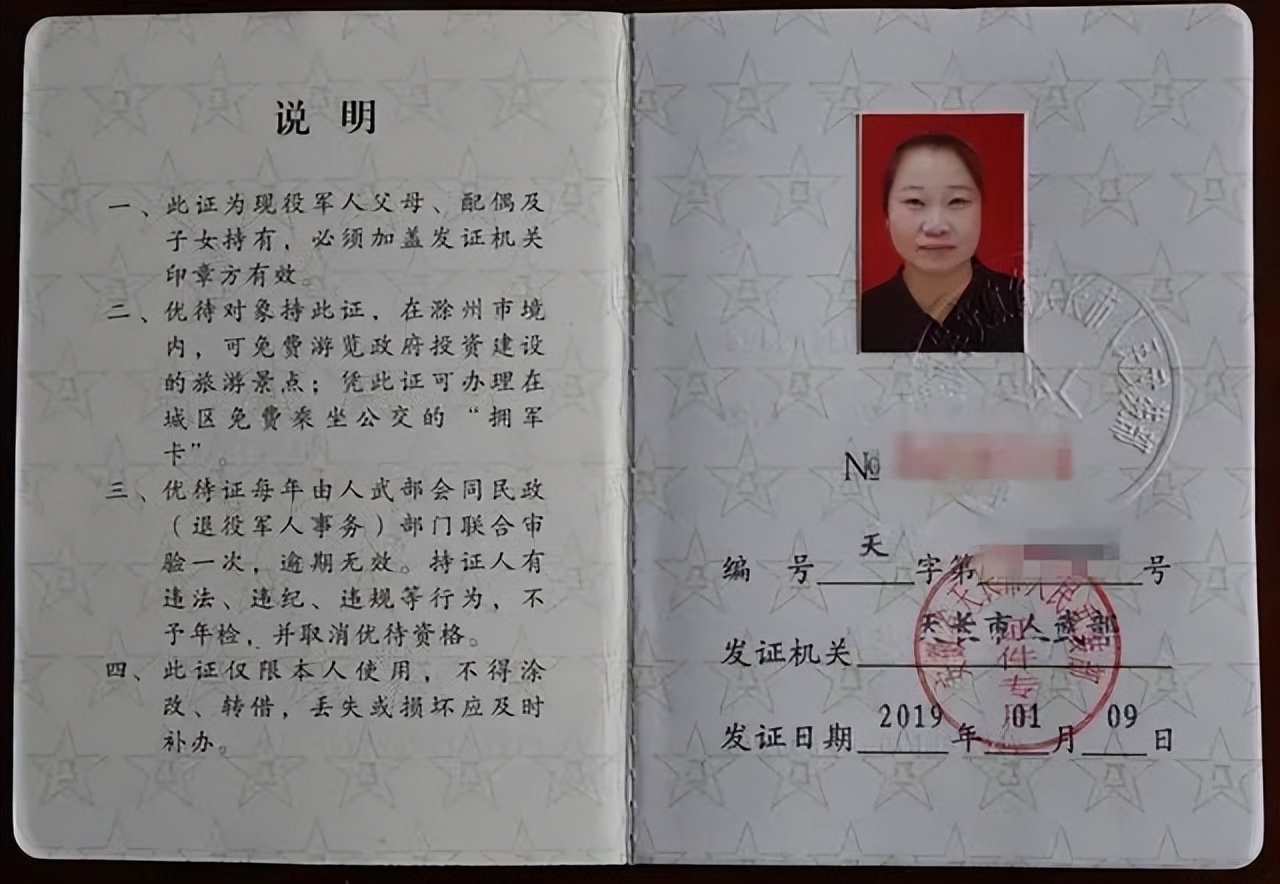 说 明
一、此证为现役军人父母、配偶及
子女持有，必须加盖发证机关
印章方有效。
二、优待对象持此证，在滁州市境
内，可免费游览政府投资建设
的旅游景点；凭此证可办理在
城区免费乘坐公交的“拥军
卡”。
三、优待证每年由人武部会同民政
（退役军人事务）部门联合审
验一次，逾期无效。持证人有
违法、违纪、违规等行为，不
予年检，并取消优待资格。
四、此证仅限本人使用，不得涂
改、转借，丢失或损坏应及时
补办。
№
编 号 天 字第 号
发证机关 天长市人武部
发证日期 2019 年 01 月 09 日